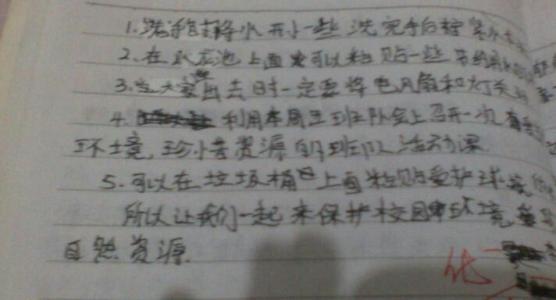 1.洗手时将水开小一些 洗完手后拧紧水
2.在水池上面可以粘贴一些节约用水
3.当大家出去时一定要将电风扇和灯关
4.利用本周三班队会上召开一次有关
环境,珍惜资源的班队活动课
5.可以在垃圾桶上面粘贴爱护环境
所以让我们一起来保护校园环境,
自然资源.